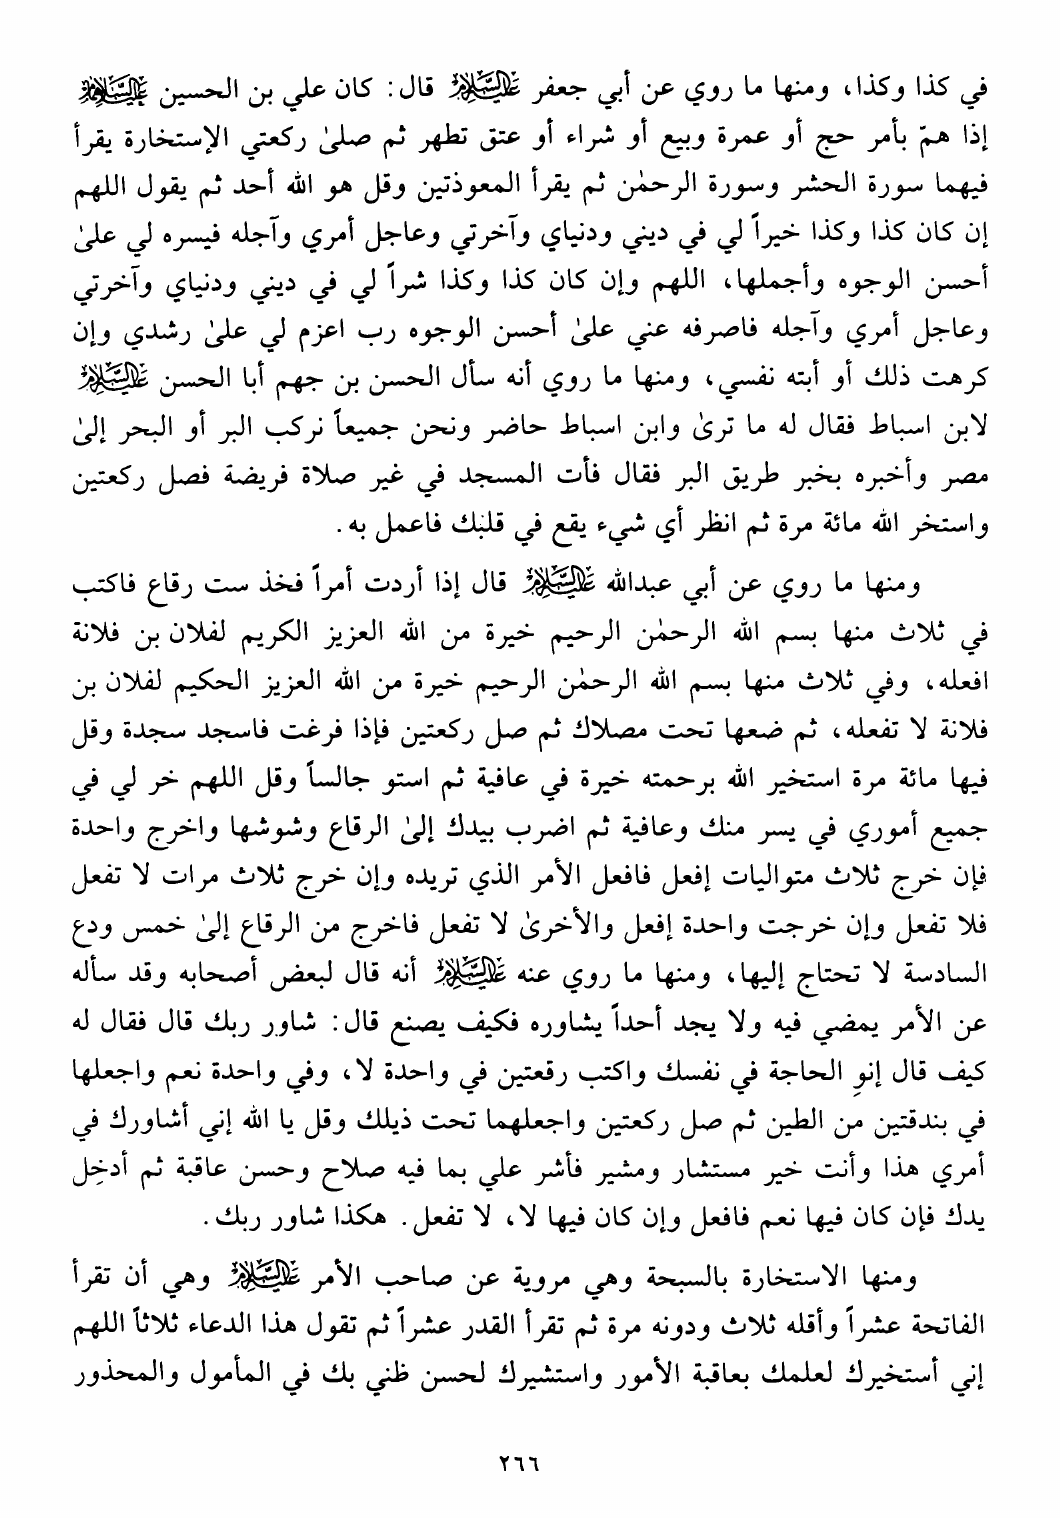 في كذا وكذا، ومنها ما روي عن أبي جعفر عليه السلام قال: كان علي بن الحسين عليهما السلام
إذا همّ بأمر حج أو عمرة وبيع أو شراء أو عتق تطهر ثم صلىٰ ركعتي الإستخارة يقرأ
فيهما سورة الحشر وسورة الرحمٰن ثم يقرأ المعوذتين وقل هو الله أحد ثم يقول اللهم
إن كان كذا وكذا خيراً لي في ديني ودنياي وآخرتي وعاجل أمري وآجله فيسره لي علىٰ
أحسن الوجوه وأجملها، اللهم وإن كان كذا وكذا شراً لي في ديني ودنياي وآخرتي
وعاجل أمري وآجله فاصرفه عني علىٰ أحسن الوجوه رب اعزم لي علىٰ رشدي وإن
كرهت ذلك أو أبته نفسي، ومنها ما روي أنه سأل الحسن بن جهم أبا الحسن عليه السلام
لابن اسباط فقال له ما ترىٰ وابن اسباط حاضر ونحن جميعاً نركب البر أو البحر إلىٰ
مصر وأخبره بخبر طريق البر فقال فأت المسجد في غير صلاة فريضة فصل ركعتين
واستخر الله مائة مرة ثم انظر أي شيء يقع في قلبك فاعمل به.
ومنها ما روي عن أبي عبدالله عليه السلام قال إذا أردت أمراً فخذ ست رقاع فاكتب
في ثلاث منها بسم الله الرحمٰن الرحيم خيرة من الله العزيز الكريم لفلان بن فلانة
افعله، وفي ثلاث منها بسم الله الرحمٰن الرحيم خيرة من الله العزيز الحكيم لفلان بن
فلانة لا تفعله، ثم ضعها تحت مصلاك ثم صل ركعتين فإذا فرغت فاسجد سجدة وقل
فيها مائة مرة استخير الله برحمته خيرة في عافية ثم استو جالساً وقل اللهم خر لي في
جميع أموري في يسر منك وعافية ثم اضرب بيدك إلىٰ الرقاع وشوشها واخرج واحدة
فإن خرج ثلاث متواليات إفعل فافعل الأمر الذي تريده وإن خرج ثلاث مرات لا تفعل
فلا تفعل وإن خرجت واحدة إفعل والأخرىٰ لا تفعل فاخرج من الرقاع إلىٰ خمس ودع
السادسة لا تحتاج إليها، ومنها ما روي عنه عليه السلام أنه قال لبعض أصحابه وقد سأله
عن الأمر يمضي فيه ولا يجد أحداً يشاوره فكيف يصنع قال: شاور ربك قال فقال له
كيف قال إنوِ الحاجة في نفسك واكتب رقعتين في واحدة لا، وفي واحدة نعم واجعلها
في بندقتين من الطين ثم صل ركعتين واجعلهما تحت ذيلك وقل يا الله إني أشاورك في
أمري هذا وأنت خير مستشار ومشير فأشر علي بما فيه صلاح وحسن عاقبة ثم أدخِل
يدك فإن كان فيها نعم فافعل وإن كان فيها لا، لا تفعل. هكذا شاور ربك.
ومنها الاستخارة بالسبحة وهي مروية عن صاحب الأمر عليه السلام وهي أن تقرأ
الفاتحة عشراً وأقله ثلاث ودونه مرة ثم تقرأ القدر عشراً ثم تقول هذا الدعاء ثلاثاً اللهم
إني أستخيرك لعلمك بعاقبة الأمور واستشيرك لحسن ظني بك في المأمول والمحذور
٢٦٦